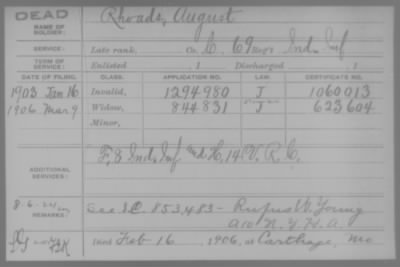 DEAD
NAME OF SOLDIER: Rhoads, August
SERVICE: Late rank, Co. C, 69 Reg't Ind. Inf
TERM OF SERVICE: Enlisted , 1 Discharged , 1
DATE OF FILING. CLASS. APPLICATION NO. LAW. CERTIFICATE NO.
1903 Jan 16 Invalid, 1294980 J 1060013
1906 Mar 9 Widow, 844831 "J" 623604
Minor,
ADDITIONAL SERVICES: F, 8 Ind. Inf and H, 14 V. R. C.
REMARKS: See 853,483 - Rufus W. Young
N.Y. H.A.
Died Feb 16, 1906, at Carthage, Mo